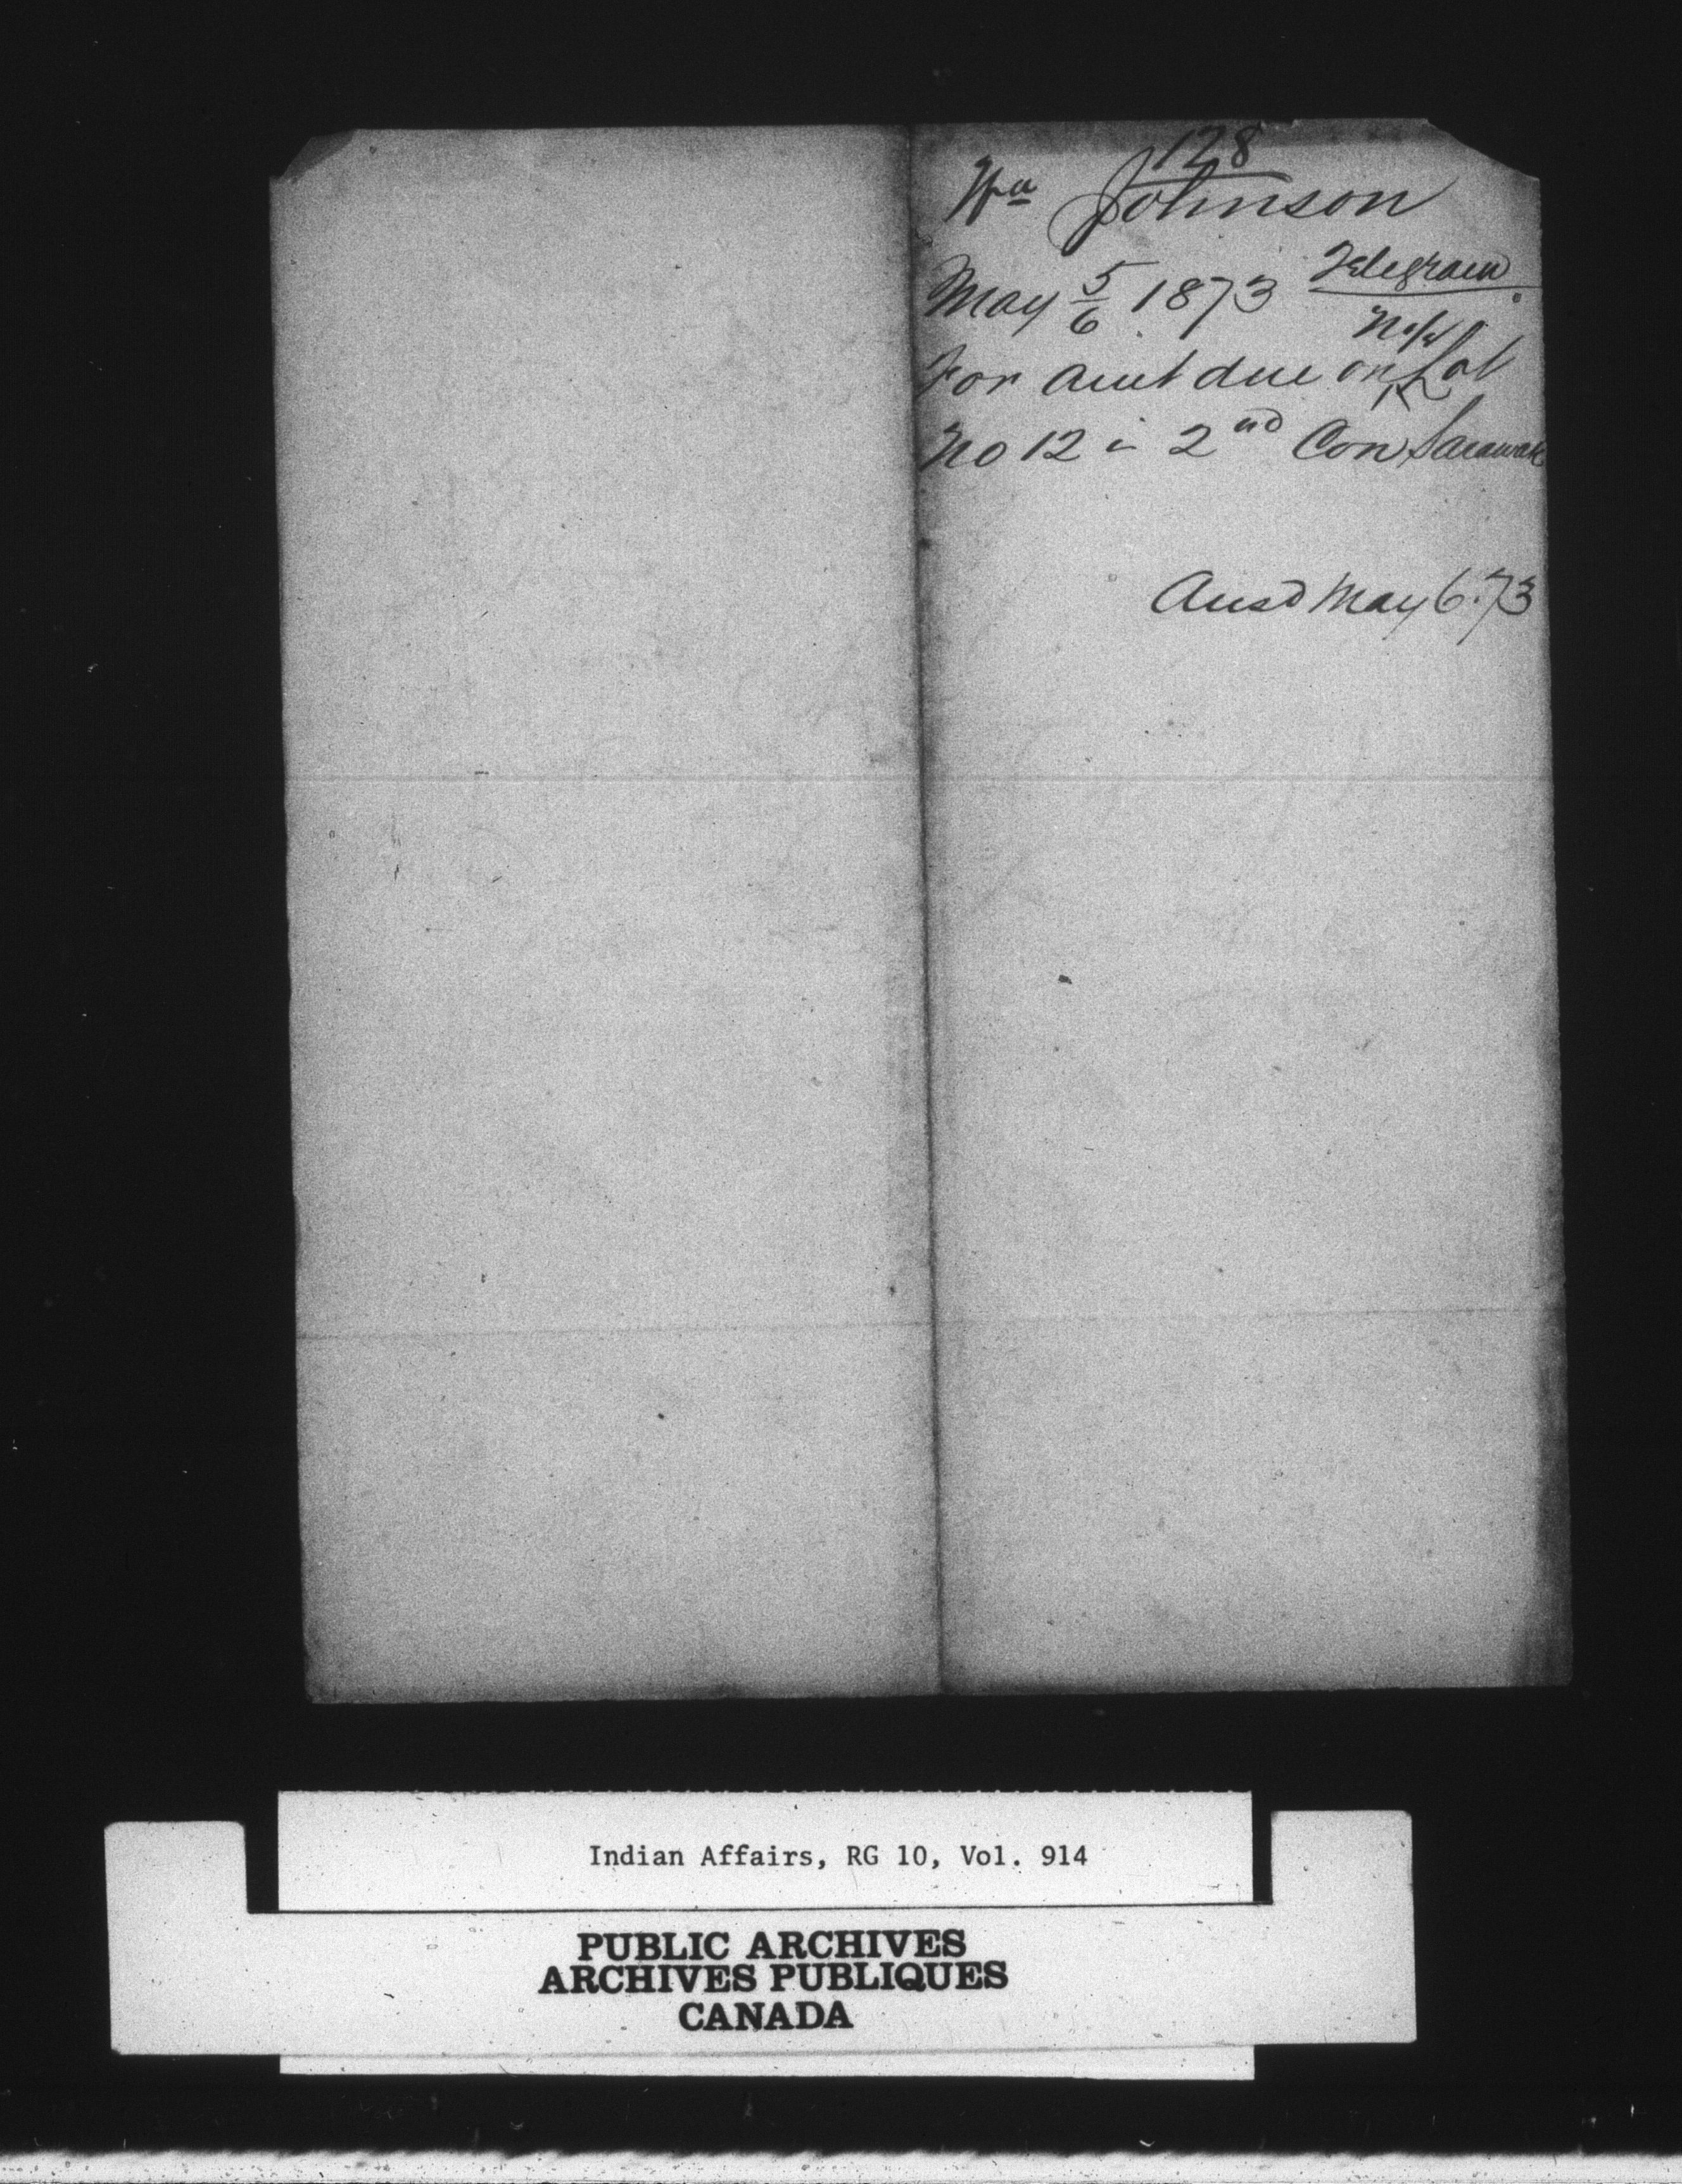 128
Wm Johnson
May 5/6 1873 Telegram
For amt due on Lot
No 12 in 2nd Con Sarawak
Ansd May 6. 73
Indian Affairs, RG 10, Vol. 914
PUBLIC ARCHIVES
ARCHIVES PUBLIQUES
CANADA